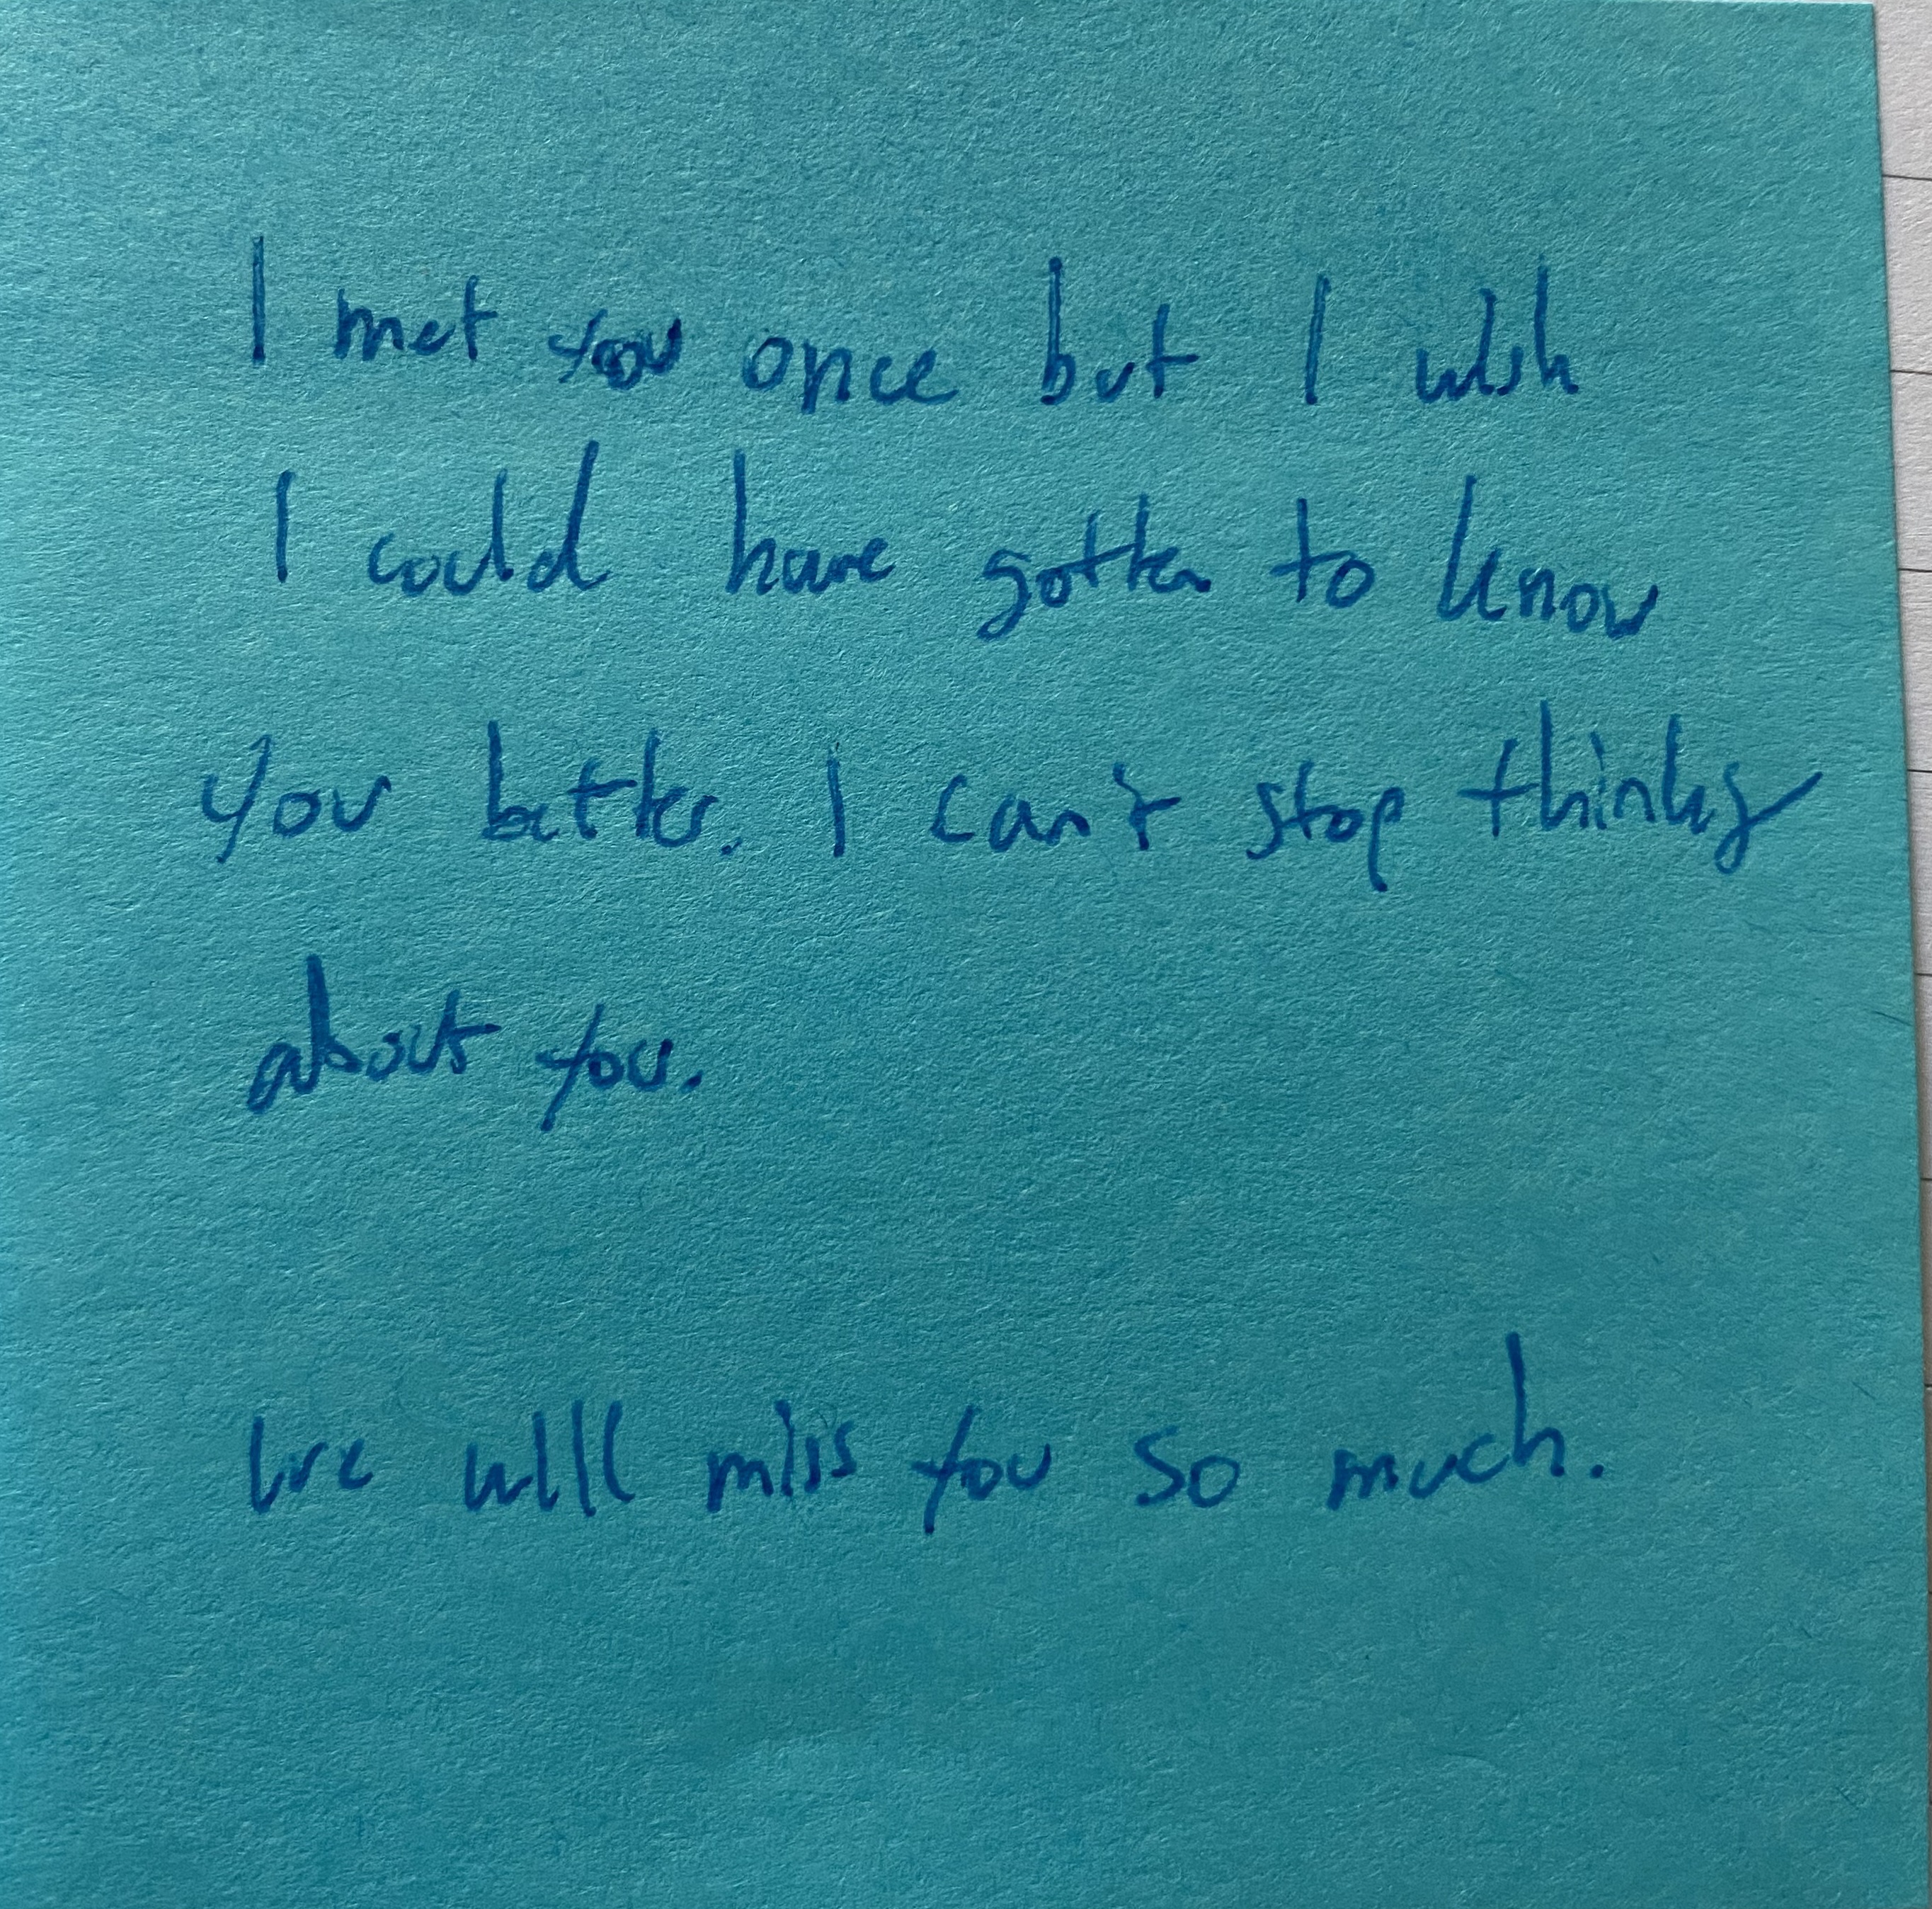 I met you once but I wish
I could have gotten to know
you better. I can't stop thinking
about you.
We will miss you so much.